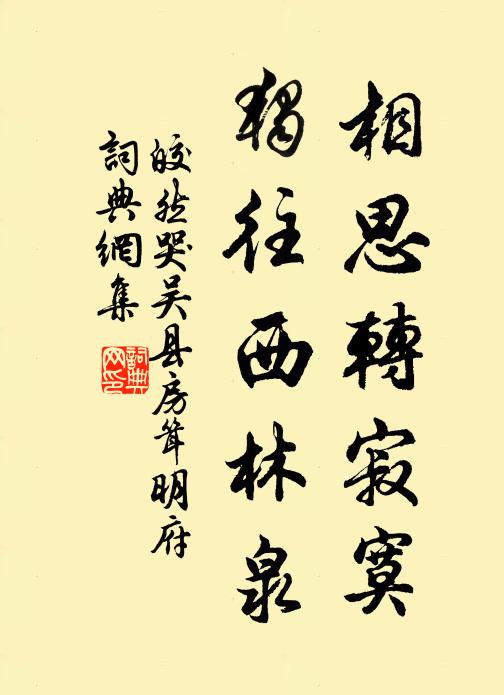 相思轉寂寞
獨往西林泉
皎然哭吴县房耸明府
詞典網集
詞典網印